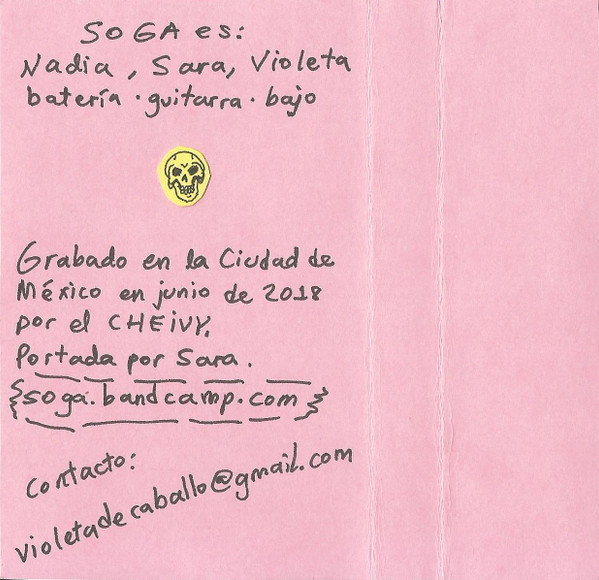 SOGA es:
Nadia, Sara, Violeta
batería · guitarra · bajo
Grabado en la Ciudad de
México en junio de 2018
por el CHEiVY.
Portada por Sara.
soga.bandcamp.com
contacto:
violetadecaballo@gmail.com